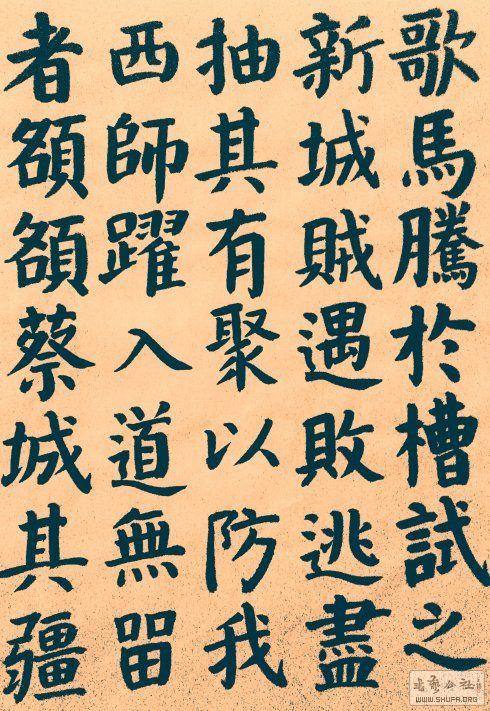 歌馬騰於槽試之
新城賊遇敗逃盡
抽其有聚以防我
西師躍入道無留
者頟頟蔡城其疆
WWW.SHUFA.ORG